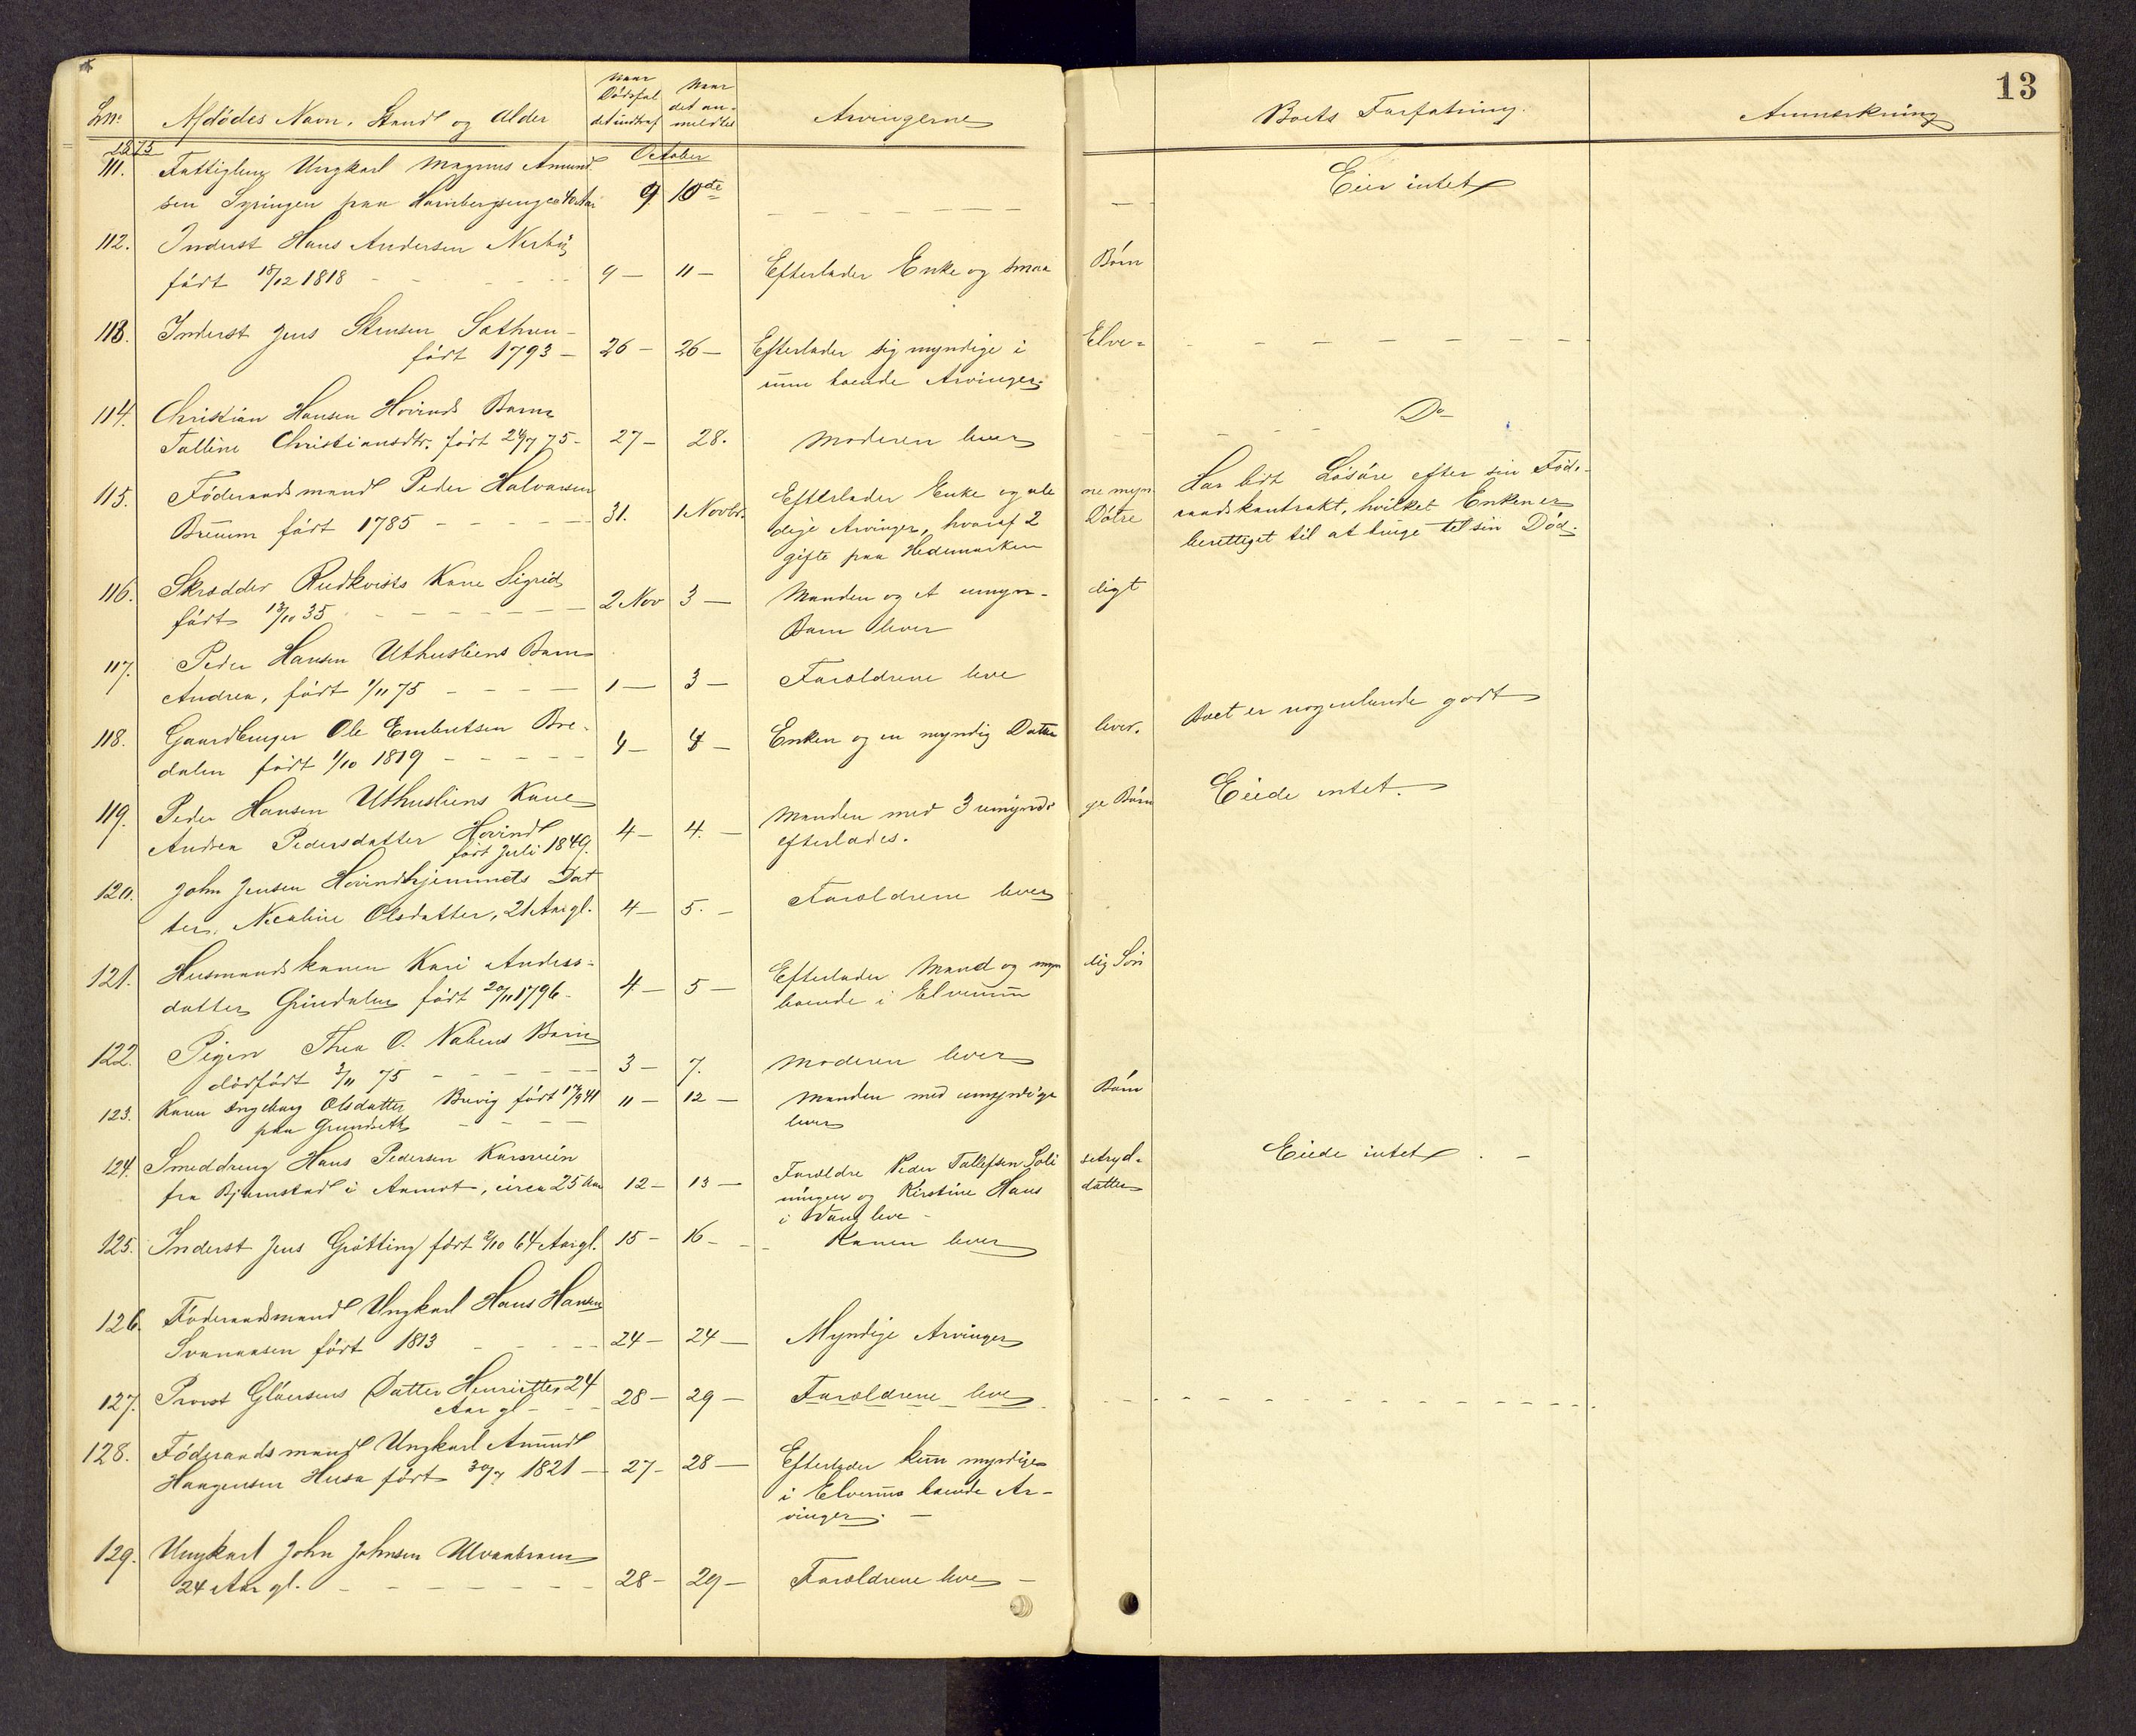 13
Lnº Afdødes Navn, Stand og Alder Naar Dødsfaldet indtraf Naar det anmeldtes Arvingerne Boets Forfatning. Anmærkning
1875 October
111. Fattiglem Ungkarl Magnus Amund-
sen Syringen paa Hornbergseng ca 40 Aar 9 10de Eier intet
112. Inderst Hans Andersen Nerby
født 18/12 1818 - 9 - 11 - Efterlader Enke og smaa Børn
113. Inderst Jens Stensen Sæthren -
født 1793 - 26 - 26 - Efterlader sig myndige i Elve-
rum boende Arvinger.
114. Christian Hansen Hovinds Barn Do
Talline Christiansdtr. født 24/7 75 - 27 - 28. Moderen lever
115. Føderaadsmand Peder Halvorsen Efterlader Enke og ale ne myn Har lidt Løsøre efter sin Føde-
Bruum født 1785 - 31. 1 Novbr. dige Arvinger, hvoraf 2 Døtre raadskontrakt, hvilket Enken er
gifte paa Hedemarken berettiget til at bruge til sin Død.
116. Skrædder Rudkvists Kone Sigrid
født 13/10 35 - 2 Nov 3 - Manden og et umyn- digt
Barn lever
117. Peder Hansen Uthusliens Barn
Andrea, født 1/11 75 - 1 - 3 - Forældrene leve
118. Gaardbruger Ole Embretsen Bre-
dalen født 1/10 1819 - 4 - 4 - Enken og en myndig Datter lever. Boet er nogenlunde godt
119. Peder Hansen Uthusliens Kone
Andrea Pedersdatter Hovind 4 - 4. - Manden med 3 umyndi ge Børn Eiede intet.
født Juli 1849. efterlades.
120. John Jensen Hovindhjemmets Dat
ter, Olsdatter, 21 Aar gl. 4 - 5. - Forældrene lever
121. Husmandskonen Kari Anders-
datter Grindalen født 20/11 1796 - 4 - 5 - Efterlader Mand og myn dig Søn
boende i Elverum
122. Pigen Thea O. Nabens Barn
dødfødt 3/11 75 - 3 - 7. Moderen lever
123. Konen Ingeborg Olsdatter Buvig født 17/9 41 11 - 12 - Manden med umyndige Børn
paa Grundseth lever
124. Smeddreng Hans Pedersen Korsveien
fra Bjørnstad i Aamot, circa 25 Aar 12 - 13 - Forældre Peder Tollefsen Soli setryd- Eiede intet. -
ningen og Kirstine Hans datter
i Vang leve -
125. Inderst Jens Grøtting født 2/10 64 Aar gl. 15 - 16 - Konen lever
126. Føderaadsmand Ungkarl Hans Hansen
Svenaasen født 1813 24 - 24 - Myndige Arvinger
127. Provst Gløersens Datter Henriette, 24
Aar gl - 28 - 29 - Forældrene leve
128. Føderaadsmand Ungkarl Amund
Haagensen Husu født 30/7 1821 - 27 - 28 - Efterlader kun myndige
i Elverum boende Ar-
vinger. -
129. Ungkarl John Johnsen Ulvaabroen
24 Aar gl. - 28 - 29 - Forældrene leve -